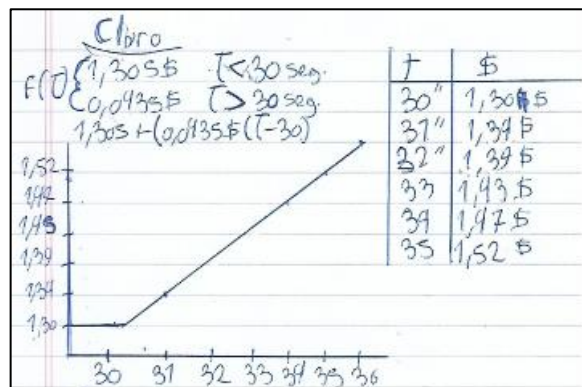 Claro
F(T) { 1,305$ T < 30 seg.
{ 0,0435$ T > 30 seg.
1,305 + (0,0435$ (T-30)
T $
30" 1,30 $
31" 1,34 $
32" 1,39 $
33 1,43 $
34 1,47 $
35 1,52 $
1,52
1,47
1,43
1,39
1,34
1,30
30 31 32 33 34 35 36